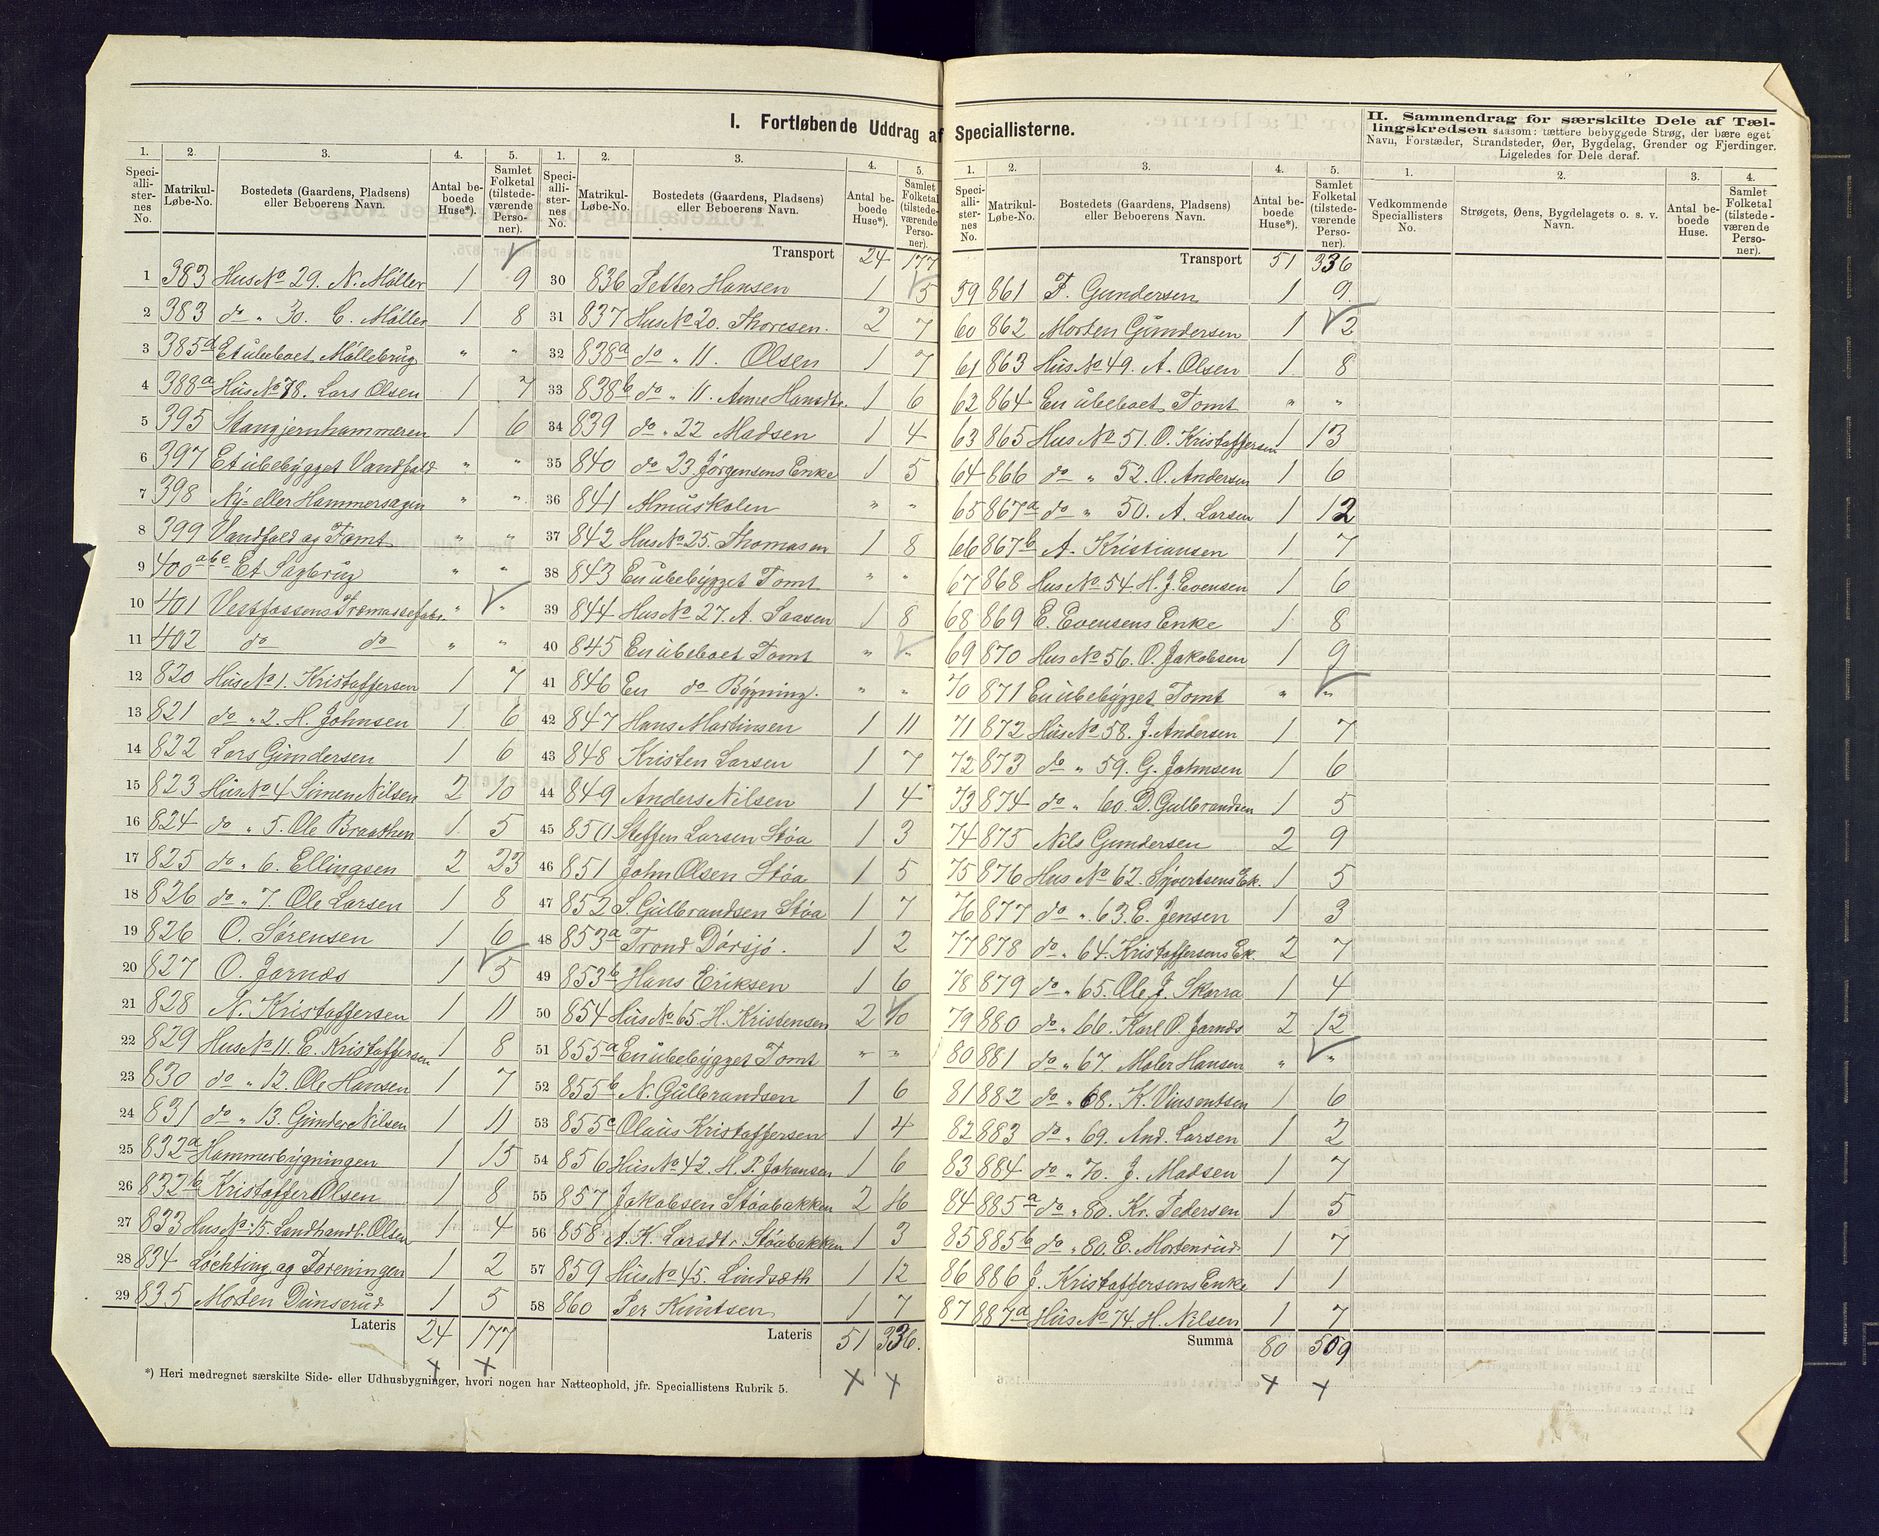 I. Fortløbende Uddrag af Speciallisterne.
1. 2. 3. 4. 5.
Speciallisternes No. Matrikul-Løbe-No. Bostedets (Gaardens, Pladsens) eller Beboerens Navn. Antal beboede Huse*). Samlet Folketal (tilstedeværende Personer).
1 383 Hus No 29. N. Møller 1 9
2 383 do " 30. C. Møller 1 8
3 385a Et ubeboet Møllebrug " "
4 388a Hus No 78. Lars Olsen 1 7
5 395 Stangjernhammeren 1 6
6 397 Et ubebygget Vandfald " "
7 398 Ny- eller Hammersagen " "
8 399 Vandfald og Tomt " "
9 400abc Et Sagbrug " "
10 401 Vestfossens Træmassefabr. " "
11 402 do do " "
12 820 Hus No 1. Kristoffersen 1 7
13 821 do " 2. H. Johnsen 1 6
14 822 Lars Gundersen 1 6
15 823 Hus No 4 Simen Nilsen 2 10
16 824 do " 5. Ole Braathen 1 5
17 825 do " 6. Ellingsen 2 23
18 826 do " 7. Ole Larsen 1 8
19 826 O. Sørensen 1 6
20 827 O. Jarnæs 1 5
21 828 N. Kristoffersen 1 11
22 829 Hus No 11. C. Kristoffersen 1 8
23 830 do " 12. Ole Hansen 1 7
24 831 do " 13. Gunder Nilsen 1 11
25 832a Hammerbygningen 1 15
26 832b Kristoffer Olsen 1 8
27 833 Hus No 15. Landhandl. Olsen 1 4
28 834 Løchting og Foreningen 1 2
29 835 Morten Dunserud 1 5
Lateris 24 177
*) Heri medregnet særskilte Side- eller Udhusbygninger, hvori nogen har Natteophold, jfr. Speciallistens Rubrik 5.
1. 2. 3. 4. 5.
Speciallisternes No. Matrikul-Løbe-No. Bostedets (Gaardens, Pladsens) eller Beboerens Navn. Antal beboede Huse*). Samlet Folketal (tilstedeværende Personer).
Transport 24 177
30 836 Petter Hansen 1 5
31 837 Hus No 20. Thoresen. 2 7
32 838a do " 11. Olsen 1 7
33 838b do " 11. Anne Hansdtr. 1 6
34 839 do " 22 Madsen 1 4
35 840 do 23. Jørgensens Enke 1 5
36 841 Almuskolen " "
37 842 Hus No 25. Thomassen 1 8
38 843 En ubebygget Tomt " "
39 844 Hus No 27. A. Saasen 1 8
40 845 En ubeboet Tomt " "
41 846 En do Bygning. " "
42 847 Hans Martinsen 1 11
43 848 Kristen Larsen 1 7
44 849 Anders Nilsen 1 4
45 850 Steffen Larsen Støa 1 3
46 851 John Olsen Støa 1 5
47 852 S. Gulbrandsen Støa 1 7
48 853a Trond Dørsjø. 1 2
49 853b Hans Eriksen 1 6
50 854 Hus No 65. H. Kristensen 2 10
51 855a En ubebygget Tomt " "
52 855b N. Gulbrandsen 1 6
53 855c Olaus Kristoffersen 1 4
54 856 Hus No 42. H. P. Johansen 1 6
55 857 Jakobsen Støabakken 2 16
56 858 A. K. Larsdtr Støabakken 1 3
57 859 Hus No 45. Lindsæth 1 12
58 860 Per Knutsen 1 7
Lateris 51 336.
1. 2. 3. 4. 5.
Speciallisternes No. Matrikul-Løbe-No. Bostedets (Gaardens, Pladsens) eller Beboerens Navn. Antal beboede Huse*). Samlet Folketal (tilstedeværende Personer).
Transport 51 336
59 861 F. Gundersen 1 9
60 862 Morten Gundersen 1 2
61 863 Hus No 49. A. Olsen 1 8
62 864 En ubeboet Tomt " "
63 865 Hus No 51. O. Kristoffersen 1 13
64 866 do " 52. O. Andersen 1 6
65 867a do " 50. A. Larsen 1 12
66 867b A. Kristiansen 1 7
67 868 Hus No 54. H. J. Evensen 1 6
68 869 E. Evensens Enke 1 8
69 870 Hus No 56. O. Jakobsen 1 9
70 871 En ubebygget Tomt " "
71 872 Hus No 58. J. Andersen 1 7
72 873 do " 59. G. Johnsen 1 6
73 874 do " 60. D. Gulbrandsen 1 5
74 875 Nils Gundersen 2 9
75 876 Hus No 62. Syvertsens Ek. 1 5
76 877 do " 63. E. Jensen 1 3
77 878 do " 64. Kristoffersens Ek. 2 7
78 879 do " 65. Ole J. Skarra 1 4
79 880 do " 66. Karl O. Jarnæs 2 12
80 881 do " 67. Maler Hansen " "
81 882 do " 68. K. Vinsentsen 1 6
82 883 do " 69. And. Larsen 1 2
83 884 do " 70. J. Madsen 1 7
84 885a do " 80. Kr. Pedersen 1 5
85 885b do " 80. E. Mortenrud 1 7
86 886 J. Kristoffersens Enke 1 1
87 887a Hus No 74. H. Nilsen 1 7
Summa 80 509
II. Sammendrag for særskilte Dele af Tællingskredsen saasom: tættere bebyggede Strøg, der bære eget Navn, Forstæder, Strandsteder, Øer, Bygdelag, Grender og Fjerdinger. Ligeledes for Dele deraf.
1. 2. 3. 4.
Vedkommende Speciallisters No. Strøgets, Øens, Bygdelagets o. s. v. Navn. Antal beboede Huse. Samlet Folketal (tilstedeværende Personer).